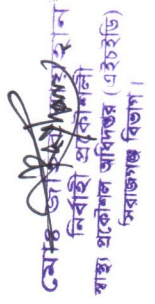 মোঃ
নির্বাহী প্রকৌশলী
স্বাস্থ্য প্রকৌশল অধিদপ্তর (এইচইডি)
সিরাজগঞ্জ বিভাগ।